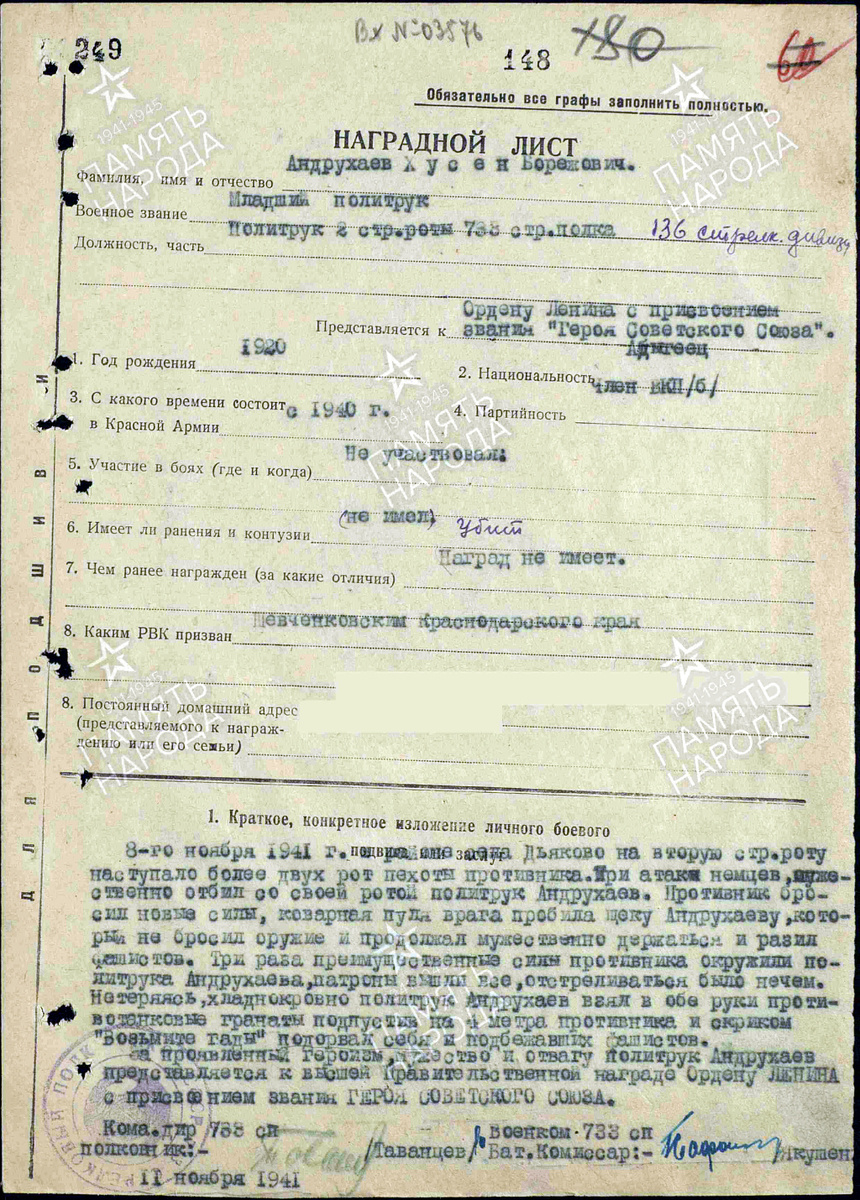 249
Вх № 03576
148
180
Обязательно все графы заполнить полностью.
НАГРАДНОЙ ЛИСТ
Фамилия, имя и отчество Андрухаев Хусен Борежович.
Военное звание Младший политрук
Должность, часть Политрук 2 стр.роты 733 стр.полка 136 стрелк. дивизи
Представляется к Ордену Ленина с присвоением
звания "Героя Советского Союза".
1. Год рождения 1920
2. Национальность Адыгеец
3. С какого времени состоит
в Красной Армии с 1940 г.
4. Партийность член ВКП/б/
5. Участие в боях (где и когда) Не участвовал:
6. Имеет ли ранения и контузии (не имел) Убит
7. Чем ранее награжден (за какие отличия) Наград не имеет.
8. Каким РВК призван Шевченковским Краснодарского края
8. Постоянный домашний адрес
(представляемого к награж-
дению или его семьи)
ДЛЯ ПОДШИВКИ
1. Краткое, конкретное изложение личного боевого
подвига или заслуг
8-го ноября 1941 г. в районе села Дьяково на вторую стр.роту
наступало более двух рот пехоты противника.Три атаки немцев,муже-
ственно отбил со своей ротой политрук Андрухаев. Противник бро-
сил новые силы, коварная пуля врага пробила щеку Андрухаеву,кото-
рый не бросил оружие и продолжал мужественно держаться и разил
фашистов. Три раза преимущественные силы противника окружили по-
литрука Андрухаева,патроны вышли все,отстреливаться было нечем.
Нетеряясь,хладнокровно политрук Андрухаев взял в обе руки проти-
вотанковые гранаты подпустив на 4 метра противника и скриком
"Возьмите гады" подорвал себя и подбежавших фашистов.
За проявленный Героизм,мужество и отвагу политрук Андрухаев
представляется к высшей Правительственной награде Ордену ЛЕНИНА
с присвоением звания ГЕРОЯ СОВЕТСКОГО СОЮЗА.
Кома.дир 733 сп Военком-733 сп
полковник:- /Таванцев/ Бат.Комиссар:- /Якушен
11 ноября 1941
1941-1945
ПАМЯТЬ
НАРОДА